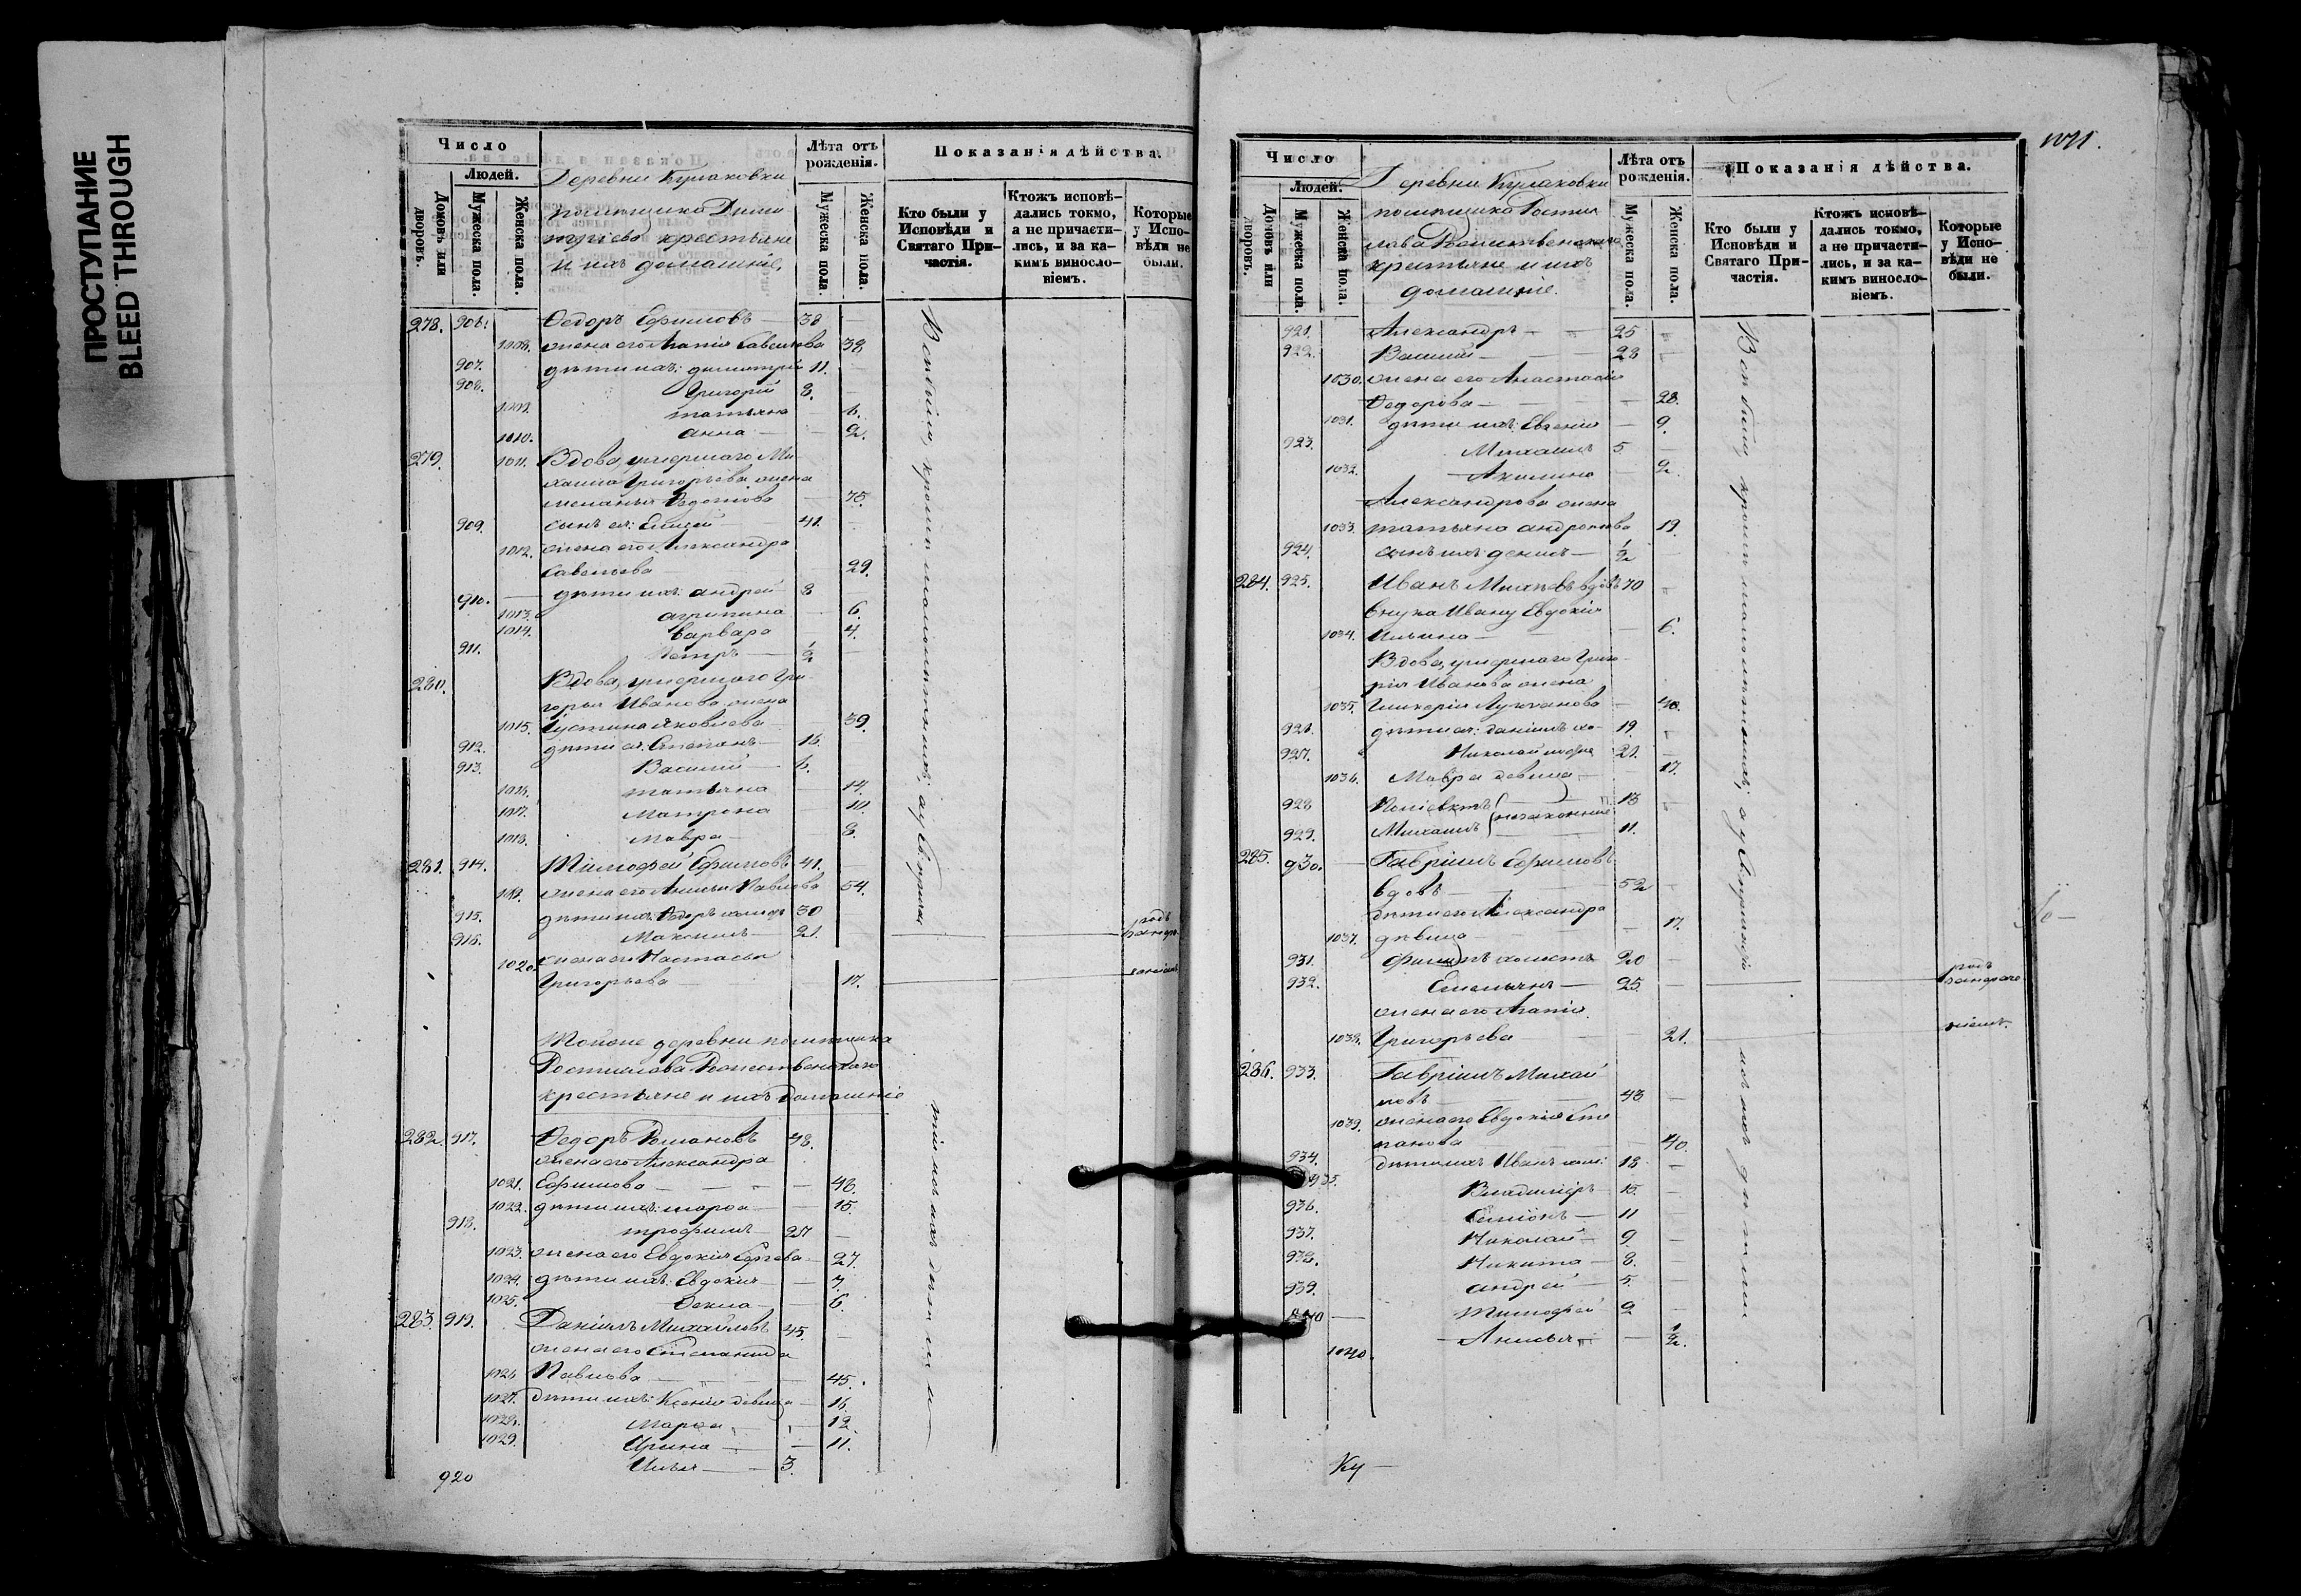 ПРОСТУПАНИЕ
BLEED THROUGH
Число
Людей.
Домовъ или дворовъ.
Мужеска пола.
Женска пола.
Деревни Кулаковки
помѣщика Дими
тріева крестьяне
и ихъ домашніе.
Лѣта отъ рожденія.
Мужеска пола.
Женска пола.
Показанія дѣйства.
Кто были у Исповѣди и Святаго При-частія.
Ктожъ исповѣ-дались токмо, а не причасти-лись, и за ка-кимъ виносло-віемъ.
Которые у Испо-вѣди не были.
278. 906. Ѳедоръ Ефимовъ — 38
1008. жена его Агапія Савельева 38
907. дѣти ихъ: димитрій 11.
908. Григорій 8.
1009. татьяна — 6.
1010. анна — 2.
279. 1011. Вдова, умершаго Ми-
хаила Григорьева жена
меланья Ѳедотова — 75.
909. сынъ ея: Елисей 41.
1012. жена его Александра
Савельева — 29.
910. — дѣти ихъ: андрей 8
1013. агрипина — 6.
1014. варвара — 4.
911. Петръ — 1/2
280. Вдова, умершаго Гри-
горья Иванова жена
1015. Іустина Яковлева — 39.
912. дѣти ея: Степанъ — 16.
913. Василій — 6.
1016. татьяна — 14.
1017. Матрона — 10.
1018. мавра — 8.
281. 914. Тимофей Ефимовъ 41.
1019. жена его Анисья Павлова 54.
915. дѣти ихъ: Ѳедоръ холост 30
916. Максимъ — 21.
1020. жена его Настасья
Григорьева — 17.
Тойже деревни помѣщика
Ростислава Рожественскаго
крестьяне и ихъ домашніе
282. 917. Ѳедоръ Романовъ 48.
жена его Александра
1021. Ефимова — 48.
1022. дѣти ихъ: марѳа — 15.
918. трофимъ 27
1023. жена его Евдокія Сергева 27.
1024. дѣти ихъ: Евдокія — 7.
1025. Ѳекла — 6.
283. 919. Даніилъ Михайловъ 45.
жена его Степанида
1026. Павлова — 45.
1027. дѣти ихъ: Ксенія девица — 16.
1028. Марѳа — 12.
1029. Ирина — 11.
920 Илья — 3.
Всѣ были, кромѣ малолѣтнихъ; а у вдовы
1071.
Число
Людей.
Домовъ или дворовъ.
Мужеска пола.
Женска пола.
Деревни Кулаковки
помѣщика Ростис
лава Рожественскаго
крестьяне и ихъ
домашніе.
Лѣта отъ рожденія.
Мужеска пола.
Женска пола.
Показанія дѣйства.
Кто были у Исповѣди и Святаго При-частія.
Ктожъ исповѣ-дались токмо, а не причасти-лись, и за ка-кимъ виносло-віемъ.
Которые у Испо-вѣди не были.
921. Александръ — 25
922. Василій — 28
1030. жена его Анастасія
Ѳедорова — 28.
1031. дѣти ихъ: Евгенія — 9.
923. Михаилъ 5
1032. Акилина — 2.
Александрова жена
1033. татьяна андронова 19.
924. сынъ ихъ: денисъ — 1/2
284. 925. Иванъ Михѣевъ вдовъ 70
внука Ивану Евдокія
1034. Ильина — 6.
Вдова, умершаго Григо-
рія Иванова жена
1035. Гликерія Лукіанова — 40.
926. дѣти ея: даніилъ хо- 19.
927. Николай 21.
1036. Мавра девица — 17.
928 Поліевктъ — 13
незаконные
929. Михаилъ — 11.
285. 930. Гавріилъ Ефимовъ
вдовъ — 52
дѣти его Александра
1037. дѣвица — 17.
931. Филипъ холостъ 20
932. Емельянъ — 25.
жена его Агапія
1038. Григорьева — 21.
286. 933. Гавріилъ Михай
ловъ — 43
1039. жена его Евдокія Сте
панова — 40.
934. дѣти ихъ: Иванъ хол: 18
935. Владиміръ — 15.
936. Симіонъ — 11
937. Николай — 9.
938. Никита — 8.
939. андрей — 5.
940 — Тимофей 2
1040. Анисья — 1/2.
Всѣ были кромѣ малолѣтнихъ;
Ку —